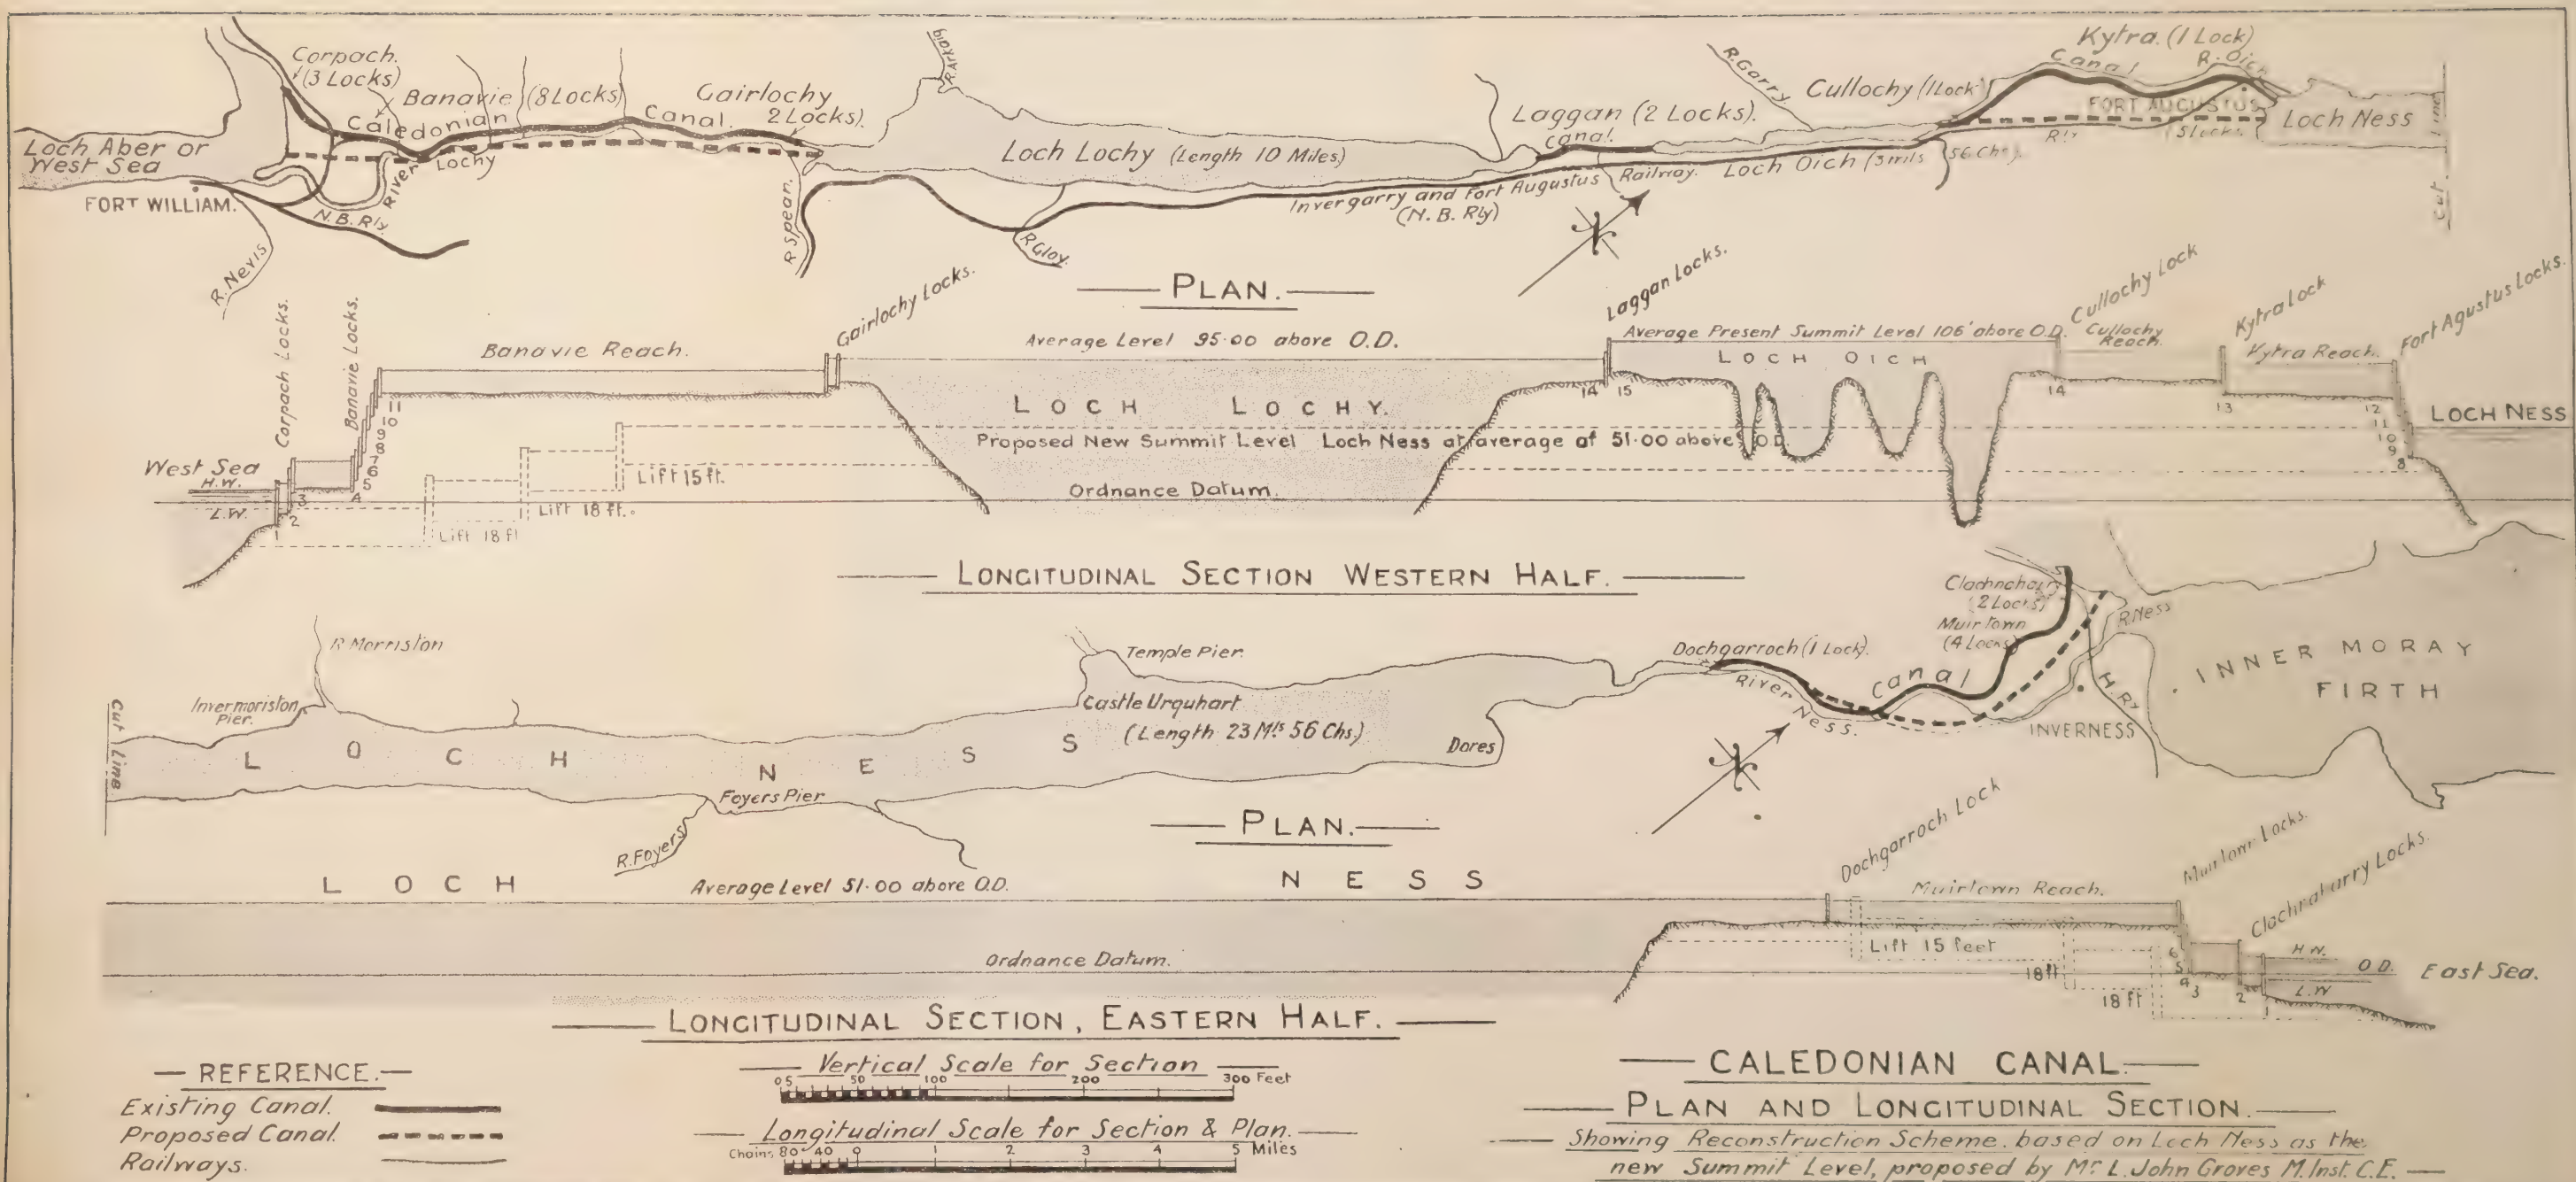 Corpach.
(3 Locks)
Banavie (8 Locks)
Gairlochy
2 Locks).
Caledonian Canal.
Loch Aber or
West Sea
River Lochy
FORT WILLIAM.
N.B. Rly.
R. Nevis
R. Spean.
R. Arkaig
Loch Lochy (Length 10 Miles)
R. Gloy.
Invergarry and Fort Augustus Railway.
(N. B. Rly)
R. Garry
Laggan (2 Locks).
Canal.
Loch Oich (3 mls 56 Chs).
Cullochy (1 Lock)
Kytra. (1 Lock)
Canal
R. Oich
FORT AUGUSTUS
(5 Locks)
Rly
Loch Ness
Cut Line
PLAN.
Corpach Locks.
Banavie Locks.
Banavie Reach.
Gairlochy Locks.
Average Level 95·00 above O.D.
Laggan Locks.
Average Present Summit Level 106' above O.D.
LOCH OICH
Cullochy Lock
Cullochy
Reach.
Kytra Lock
Kytra Reach.
Fort Agustus Locks.
LOCH LOCHY.
LOCH NESS
Proposed New Summit Level Loch Ness at average of 51·00 above O.D.
Ordnance Datum.
West Sea
H.W.
L.W.
2
3
4
5
6
7
8
9
10
11
14
15
14
13
12
11
10
9
8
Lift 18 ft
Lift 18 ft.
Lift 15 ft.
LONGITUDINAL SECTION WESTERN HALF.
R Morriston
Invermoriston
Pier.
Cut Line
LOCH NESS
Temple Pier.
Castle Urquhart
(Length 23 Mls 56 Chs.)
Dores
Foyers Pier
R. Foyers
Dochgarroch (1 Lock).
River Ness.
Canal
Clachnaharry
(2 Locks)
Muirtown
(4 Locks)
R. Ness
H. Ry
INVERNESS
INNER MORAY
FIRTH
PLAN.
LOCH NESS
Average Level 51·00 above O.D.
Ordnance Datum.
Dochgarroch Lock
Muirtown Reach.
Muirtown Locks.
Clachnaharry Locks.
Lift 15 feet
18 ft
18 ft
6
5
4
3
2
H.W.
O.D.
L.W
East Sea.
LONGITUDINAL SECTION, EASTERN HALF.
REFERENCE.
Existing Canal.
Proposed Canal.
Railways.
Vertical Scale for Section
0 5 50 100 200 300 Feet
Longitudinal Scale for Section & Plan.
Chains 80 40 0 1 2 3 4 5 Miles
CALEDONIAN CANAL.
PLAN AND LONGITUDINAL SECTION.
Showing Reconstruction Scheme. based on Loch Ness as the
new Summit Level, proposed by Mr. L. John Groves M. Inst. C.E.